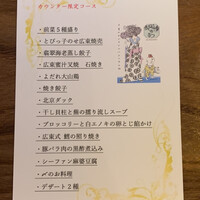 カウンター限定コース
・前菜5種盛り
・とびっ子のせ広東焼売
・翡翠海老蒸し餃子
・広東蜜汁叉焼　石焼き
・よだれ大山鶏
・焼き餃子
・北京ダック
・干し貝柱と蕪の擦り流しスープ
・ブロッコリーと白エノキの卵とじ餡かけ
・広東式 鰆の照り焼き
・豚バラ肉の黒酢煮込み
・シーファン麻婆豆腐
・〆のお料理
・デザート2種